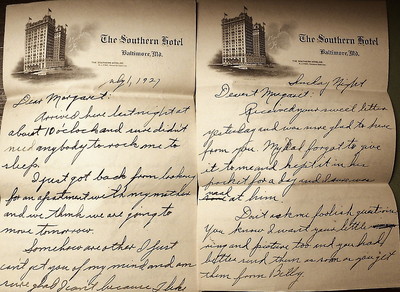 The Southern Hotel
Baltimore, Md.
July 1, 1927
Dear Margaret:
Arrived here last night at
about 10 o'clock and sure didn't
need anybody to rock me to
sleep.
I just got back from looking
for an apartment with my mother
and we think we are going to
move tomorrow.
Somehow or other I just
can't get you of my mind and am
sure glad I can't because I like
The Southern Hotel
Baltimore, Md.
Sunday Night
Dearest Margaret:
Received your sweet letter
yesterday and was sure glad to hear
from you. My Dad forgot to give
it to me and kept it in his
pocket for a day and I was
at him.
Don't ask me foolish questions.
You know I want your little
ring and picture too and you had
better send them or soon or you get
them from Billy.